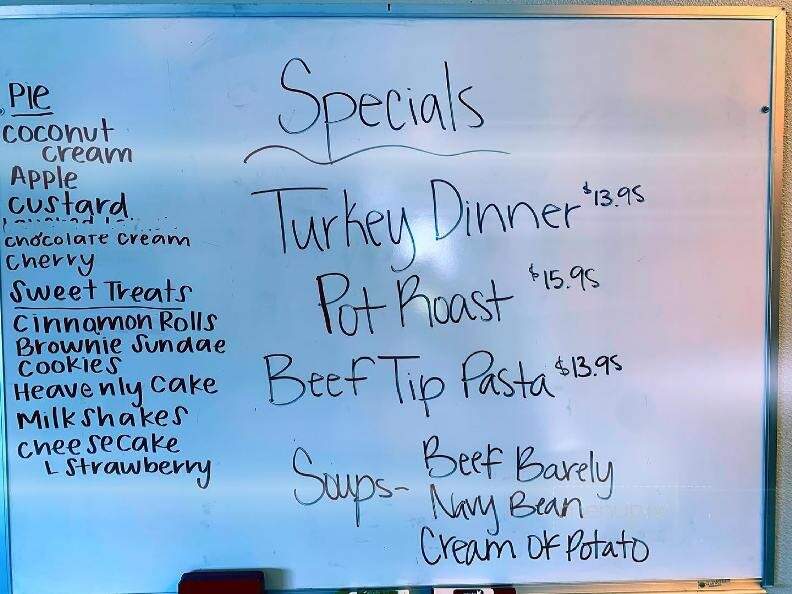 Pie
coconut
cream
Apple
custard
chocolate cream
cherry
Sweet Treats
Cinnamon Rolls
Brownie Sundae
Cookies
Heavenly Cake
Milkshakes
cheesecake
L Strawberry
Specials
Turkey Dinner $13.95
Pot Roast $15.95
Beef Tip Pasta $13.95
Soups- Beef Barely
Navy Bean
Cream Of Potato